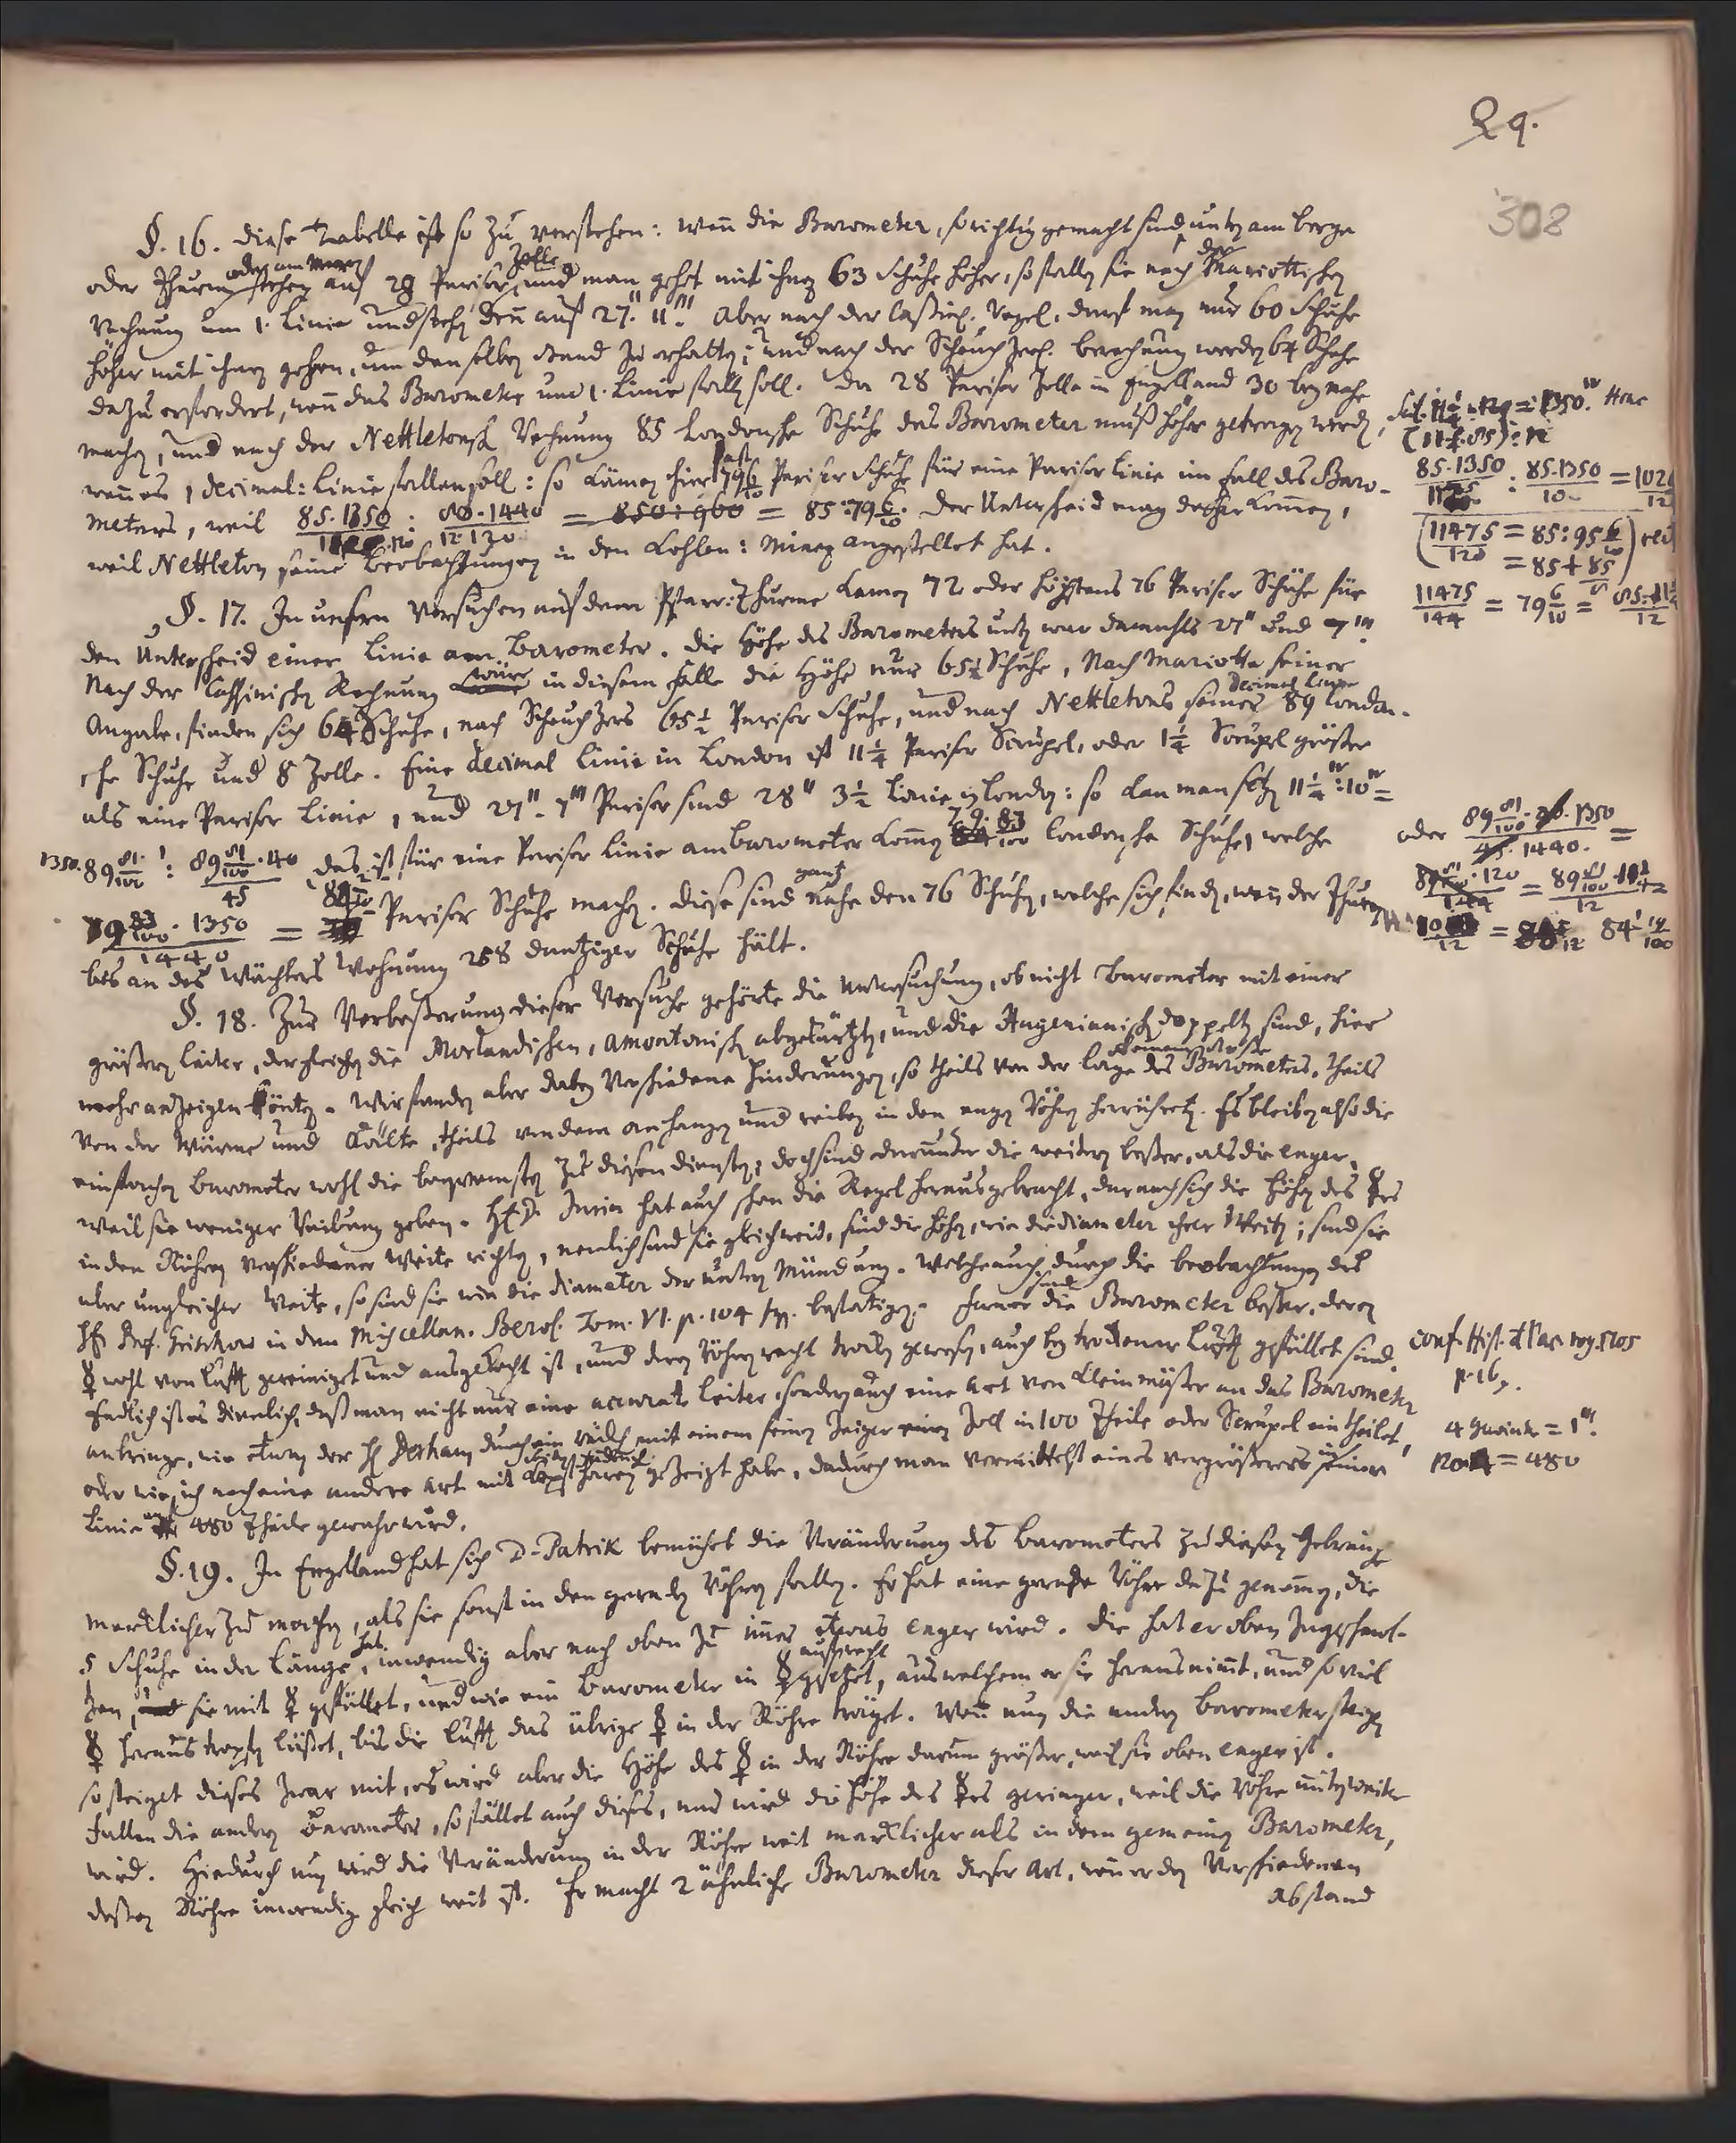 29.
308
§. 16. diese Tabelle ist so zu verstehen: wenn die Barometer, so richtig gemacht sind, unten am berge
oder Thurm oder am Meer stehen auf 28 Pariser Zolle, und man gehet mit ihnen 63 Schuhe höher, so fallen sie nach der Mariottischen
Rechnung um 1. Linie und stehen denn auf 27." 11."' Aber nach der Cassin. Regel, darf man nur 60 Schuhe
höher mit ihnen gehen, um denselben Stand zu erhalten; und nach der Scheuchzer. berechnung werden 64 Schuhe
dazu erfordert, wenn das Barometer um 1. Linie fallen soll. Da 28 Pariser Zolle in Engelland 30 beynahe
machen, und nach der Nettletonsch Rechnung 85 Londonsche Schuhe das Barometer muß höher getragen werden,
wenn es 1 decimal: Linie fallen soll: so kämen hier fast 79 6/10 Pariser Schuhe für eine Pariser Linie im Fall des Baro-
meters, weil 85.1350 : 80.1440 / 12.120 = 850:960 = 85:79 6/10. Der Unterscheid mag daher kommen,
weil Nettleton seine Beobachtungen in den Kohlen: Minen angestellet hat.
85.1350 : 85.1350 / 10
(11475 / 120 = 85:95 6/10
= 85+85
11475 / 144 = 79 6/10 =
§. 17. In unsern Versuchen auf dem Pfarr: Thurme kamen 72 oder höchstens 76 Pariser Schuhe für
den Unterscheid einer Linie am Barometer. Die Höhe des Barometers unten war damahls 27" und 7"'.
Nach der Cassinischen Rechnung wäre in diesem Falle die Höhe nur 65 1/2 Schuhe, Nach Mariotte seiner
Angabe, finden sich 64 Schuhe, nach Scheuchzers 65 1/2 Pariser Schuhe, und nach Nettletons seiner decimal Linie 89 London-
sche Schuhe und 8 Zolle. Eine decimal Linie in London ist 11 1/4 Pariser Scrupel, oder 1 1/4 Scrupel größer
als eine Pariser Linie, und 27" - 7"' Pariser sind 28" 3 1/2 Linie in London: so kan man setzen 11 1/4 : 10 =
1350. 89 81/100 : 89 81/100 . 40 / 45 das ist, für eine Pariser Linie am barometer kommen 79. 83/100 Londonsche Schuhe, welche
79 83/100 . 1350 / 1440 = Pariser Schuhe machen. Diese sind gantz nahe den 76 Schuhen, welche sich finden, wenn der Thurm
bis an des Wächters Wohnung 258 dantziger Schuhe hält.
oder 89 81/100 . 1350 / 1440 =
84 19/100
§. 18. Zur Verbeßerung dieser Versuche gehörte die Untersuchung, ob nicht Barometer mit einer
größern Leiter, dergleichen die Morlandischen, Amontonisch abgekürtzte, und die Hugenianisch doppelte sind, hier
mehr anzeigen könten. Wir fanden aber dabey verschiedene Hinderungen, so theils von der Lage des Barometers, theils
von der Wärme und Kälte, theils von dem anhangen und reiben in den engen Röhren herrühreten. Es bleiben also die
einfachen Barometer wohl die bequemsten zu diesen diensten; doch sind darunter die weitern beßer, als die enger,
weil sie weniger Reibung geben. H. D. Jurin hat auch schon die Regel herausgebracht, darnach sich die Höhen des ☿es
in den Röhren verschiedener Weite richten, nemlich sind sie gleichweit, sind die Höhen, wie die diameter ihrer Weiten; sind sie
aber ungleicher Weite, so sind sie wie die diameter der untern Mündung. Welche auch durch die beobachtungen des
H. Prof. Grischow in dem Miscellan. Berol. Tom. VI. p. 104 sqq. bestätigen. Ferner sind die Barometer beßer, deren
☿ wohl von Lufft gereiniget und ausgekocht ist, und deren Röhren recht trocken gewesen, auch bey trockener Lufft gefüllet sind.
Endlich ist es dienlich, daß man nicht nur eine accurate Leiter, sondern auch eine art von kleinmäßer an das Barometer
anbringe, wie etwan der H. Derham durch ein mit einem feinen Zeiger einen Zoll in 100 Theile oder Scrupel eintheilet,
oder wie ich noch eine andere art mit gezeigt habe, dadurch man vermittelst eines vergrößerers in einer
Linie auf 480 Theile gewahr wird.
conf. Hist. d l'ac. roy. 1705
p. 16.
= 1"'.
120.4 = 480
§. 19. In Engelland hat sich D. Patrik bemühet die Veränderung des Barometers zu diesem Gebrauch
mercklicher zu machen, als sie sonst in den geraden Röhren fallen. Er hat eine gerade Röhre dazu genommen, die
5 Schuhe in der Länge hat, inwendig aber nach oben zu immer etwas enger wird. Die hat er oben zugeschmol-
zen, sie mit ☿ gefüllet, und wie ein Barometer in ☿ aufrecht gesetzet, aus welchem er sie herausnimmt, und so viel
☿ heraus tropfen läßet, bis die Lufft das übrige ☿ in der Röhre träget. Wenn nun die andern Barometer steigen
so steiget dieses zwar mit, es wird aber die Höhe des ☿ in der Röhre darum größer, weil sie oben enger ist.
Fallen die andern Barometer, so fället auch dieses, und wird die Höhe des ☿es geringer, weil die Röhre unten weiter
wird. Hiedurch nun wird die Veränderung in der Röhre weit mercklicher als in dem gemeinen Barometer,
deßen Röhre inwendig gleich weit ist. Er macht 2 ähnliche Barometer dieser Art, wenn er den Verschiedenen
Abstand